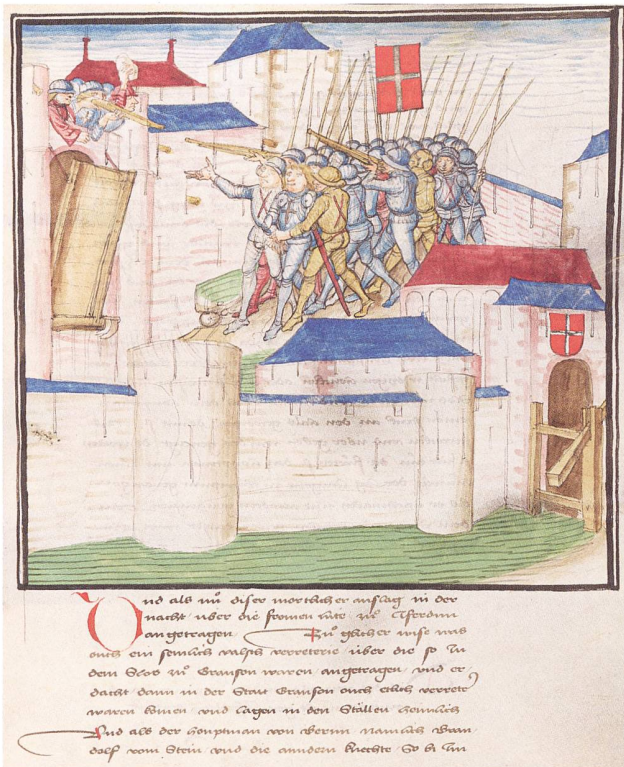 Und als nů diser mortlicher anslag in der
nacht uber die fromen lüte zů Iferdun
angetragen Zů glicher wise was
ouch ein semlich valsch verreterie über die so in
dem Slos zů Granson waren angetragen und er
dacht dann in der Statt Granson ouch etlich verreter
waren komen und lagen in den Ställen heimlich
Und als der houptman von Bernn namlich Bran
dolf vom Stein und die anndern knechte So bi im